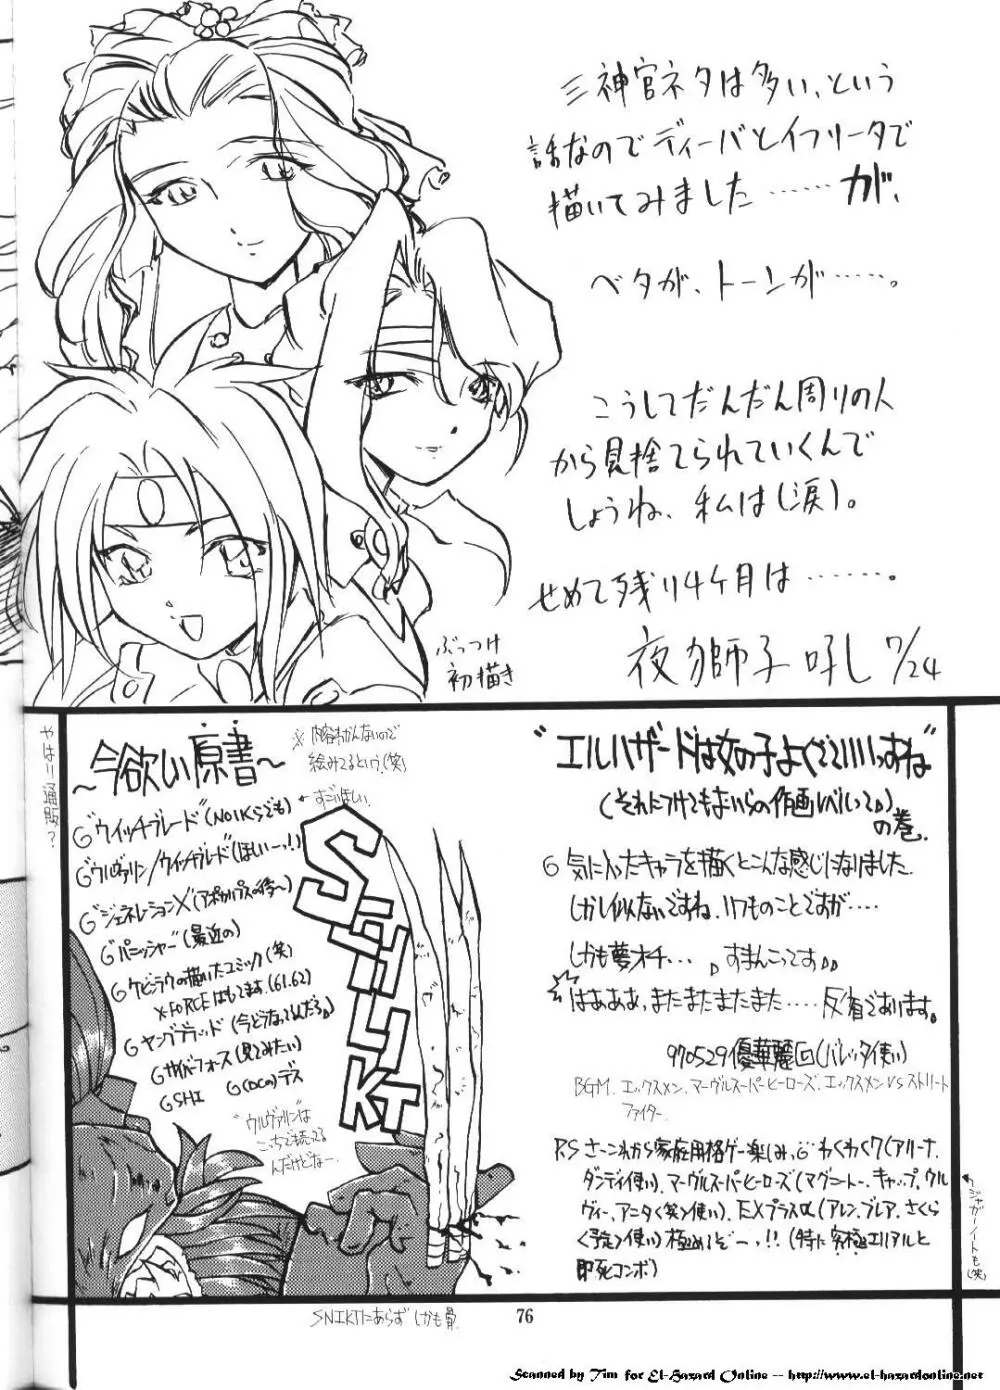 三神官ネタは多い、という
話なのでディーバとイフリータで
描いてみました……が、
ベタが、トーンが……。
こうしてだんだん周りの人
から見捨てられていくんで
しょうね、私は(涙)。
せめて残り4ヶ月は……。
夜乃獅子吼し 7/24
ぶっつけ
初描き
やはり通販?
〜今欲しい原書〜
※内容わかんないので
絵みてるという。(笑)
←すごいほしい。
G"ウイッチブレード"(NO1Kらでも)
G"ウルヴァリン/ウイッチブレード"(ほしいーっ!)
G"ジェネレーションX"(アポカリプスの後〜)
G"パニッシャー"(最近の)
Gケビン・ラウの描いたコミック(笑)
X-FORCEはもってます。(61.62)
Gヤングブラッド(今どうなってんだろ)
Gサイバーフォース(見てみたい)
GSHI G(DCの)デス
"ウルヴァリン"は
こっちで売ってる
んだけどなー。
SHLIKT
SNIKTにあらず しかも骨。
"エルハザードは女の子よくでていいっすね"
(それにつけてもおいらの作画レベルって)
の巻。
G気に入ったキャラを描くとこんな感じになりました。
しかし似ないですね。いつものことですが…
しかも夢オチ… すまんこってす
はあああ、またまたまたまた……反省であります。
970529優華麗回(バレッタ使い)
BGM. エックスメン、マーヴルスーパーヒーローズ、エックスメンVSストリート
ファイター。
P.S さーこれから家庭用格ゲー楽しみっ。Gわくわく7(アリーナ、
ダンディ使い)、マーヴルスーパーヒーローズ(マグニートー、キャップ、ウル
ヴィー、アニタ<笑>使い)、EXプラスα(アレン、ブレア、さくら
<予定>使い)極めるぞーっ!!(特に究極エリアルと
即死コンボ)
↑ジャガーノートも(笑)
76
Scanned by Tim for El-Hazard Online -- http://www.el-hazardonline.net